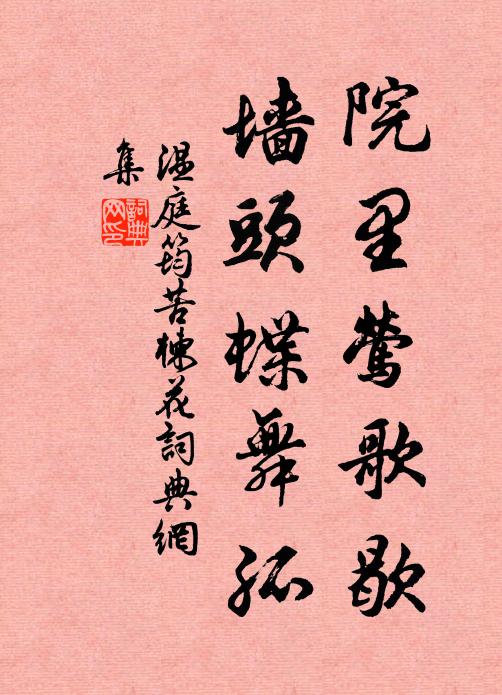 院里莺歌歇
墙頭蝶舞孤
温庭筠苦楝花詞典網
集
詞典網印